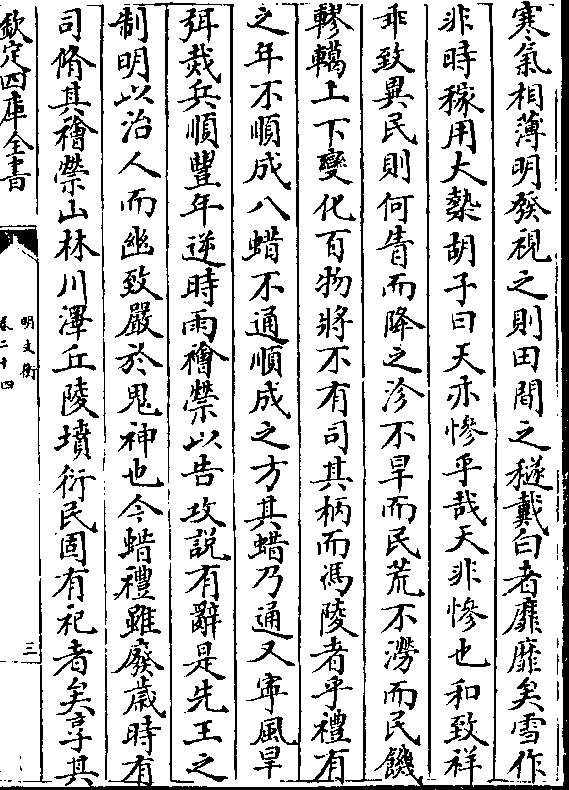 寒氣相薄明發視之則田間之穟戴白者靡靡矣雪作
非時稼用大㷇胡子曰天亦慘乎哉天非慘也和致祥
乖致異民則何眚而降之沴不旱而民荒不澇而民饑
轇轕上下變化百物將不有司其柄而馮陵者乎禮有
之年不順成八蜡不通順成之方其蜡乃通又寜風旱
弭烖兵順豐年逆時雨禬禜以告攻説有辭是先王之
制明以治人而幽致嚴於鬼神也今蜡禮雖廢歳時有
司脩其禬禜山林川澤丘陵墳衍民固有祀者矣享其
欽定四庫全書
明文衡
卷二十四
三